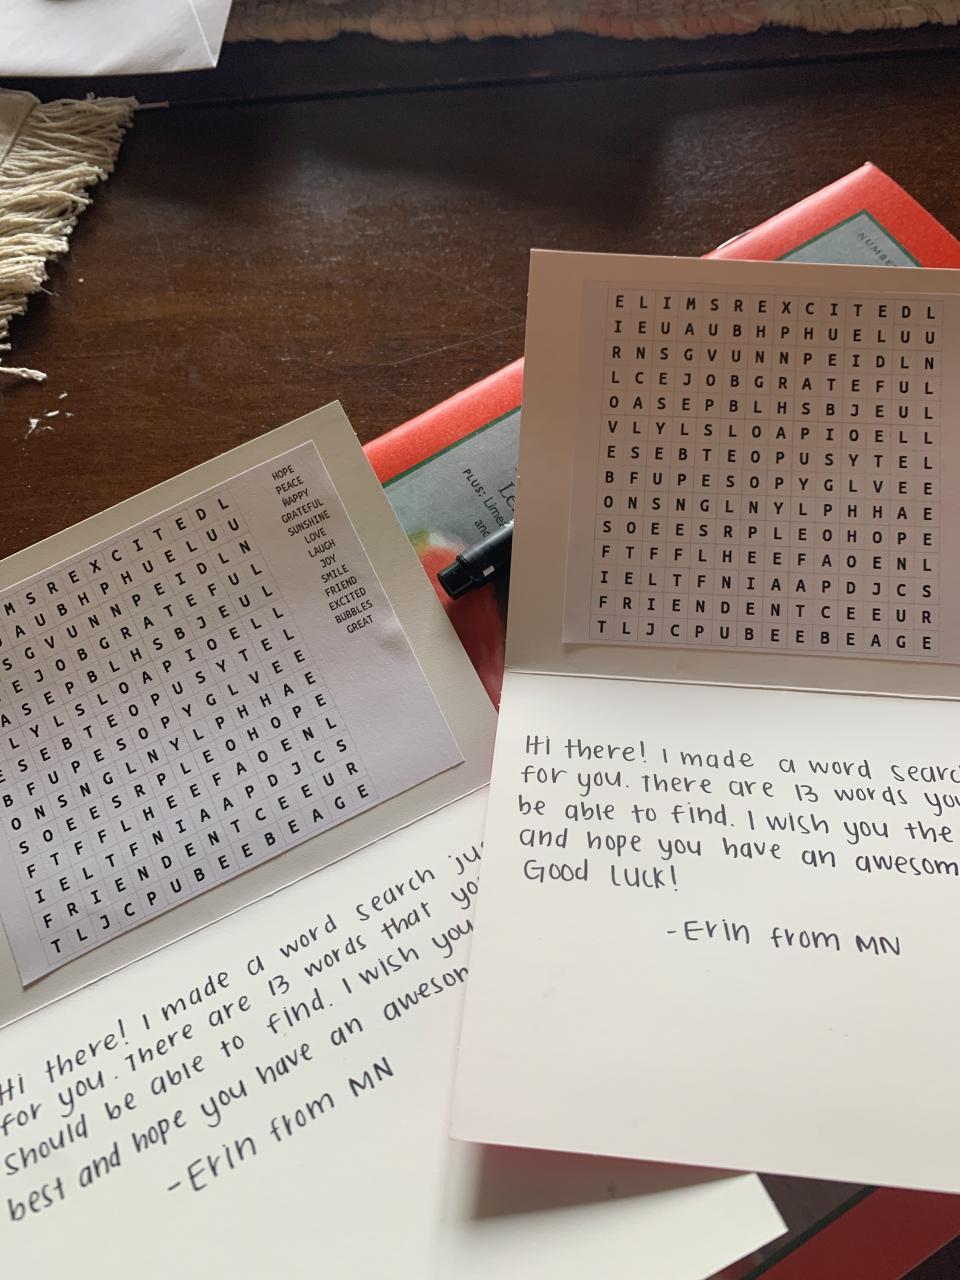 NUMBE
PLUS: Lime
and
Le
E L I M S R E X C I T E D L
I E U A U B H P H U E L U U
R N S G V U N N P E I D L N
L C E J O B G R A T E F U L
O A S E P B L H S B J E U L
V L Y L S L O A P I O E L L
E S E B T E O P U S Y T E L
B F U P E S O P Y G L V E E
O N S N G L N Y L P H H A E
S O E E S R P L E O H O P E
F T F F L H E E F A O E N L
I E L T F N I A A P D J C S
F R I E N D E N T C E E U R
T L J C P U B E E B E A G E
Hi there! I made a word searc
for you. There are 13 words you
be able to find. I wish you the
and hope you have an awesom
Good luck!
-Erin from MN
M S R E X C I T E D L
U A U B H P H U E L U U
S G V U N N P E I D L N
E J O B G R A T E F U L
A S E P B L H S B J E U L
L Y L S L O A P I O E L L
E S E B T E O P U S Y T E L
B F U P E S O P Y G L V E E
O N S N G L N Y L P H H A E
S O E E S R P L E O H O P E
F T F F L H E E F A O E N L
I E L T F N I A A P D J C S
F R I E N D E N T C E E U R
T L J C P U B E E B E A G E
HOPE
PEACE
HAPPY
GRATEFUL
SUNSHINE
LOVE
LAUGH
JOY
SMILE
FRIEND
EXCITED
BUBBLES
GREAT
Hi there! I made a word search jus
for you. There are 13 words that yo
should be able to find. I wish you
best and hope you have an awesom
-Erin from MN